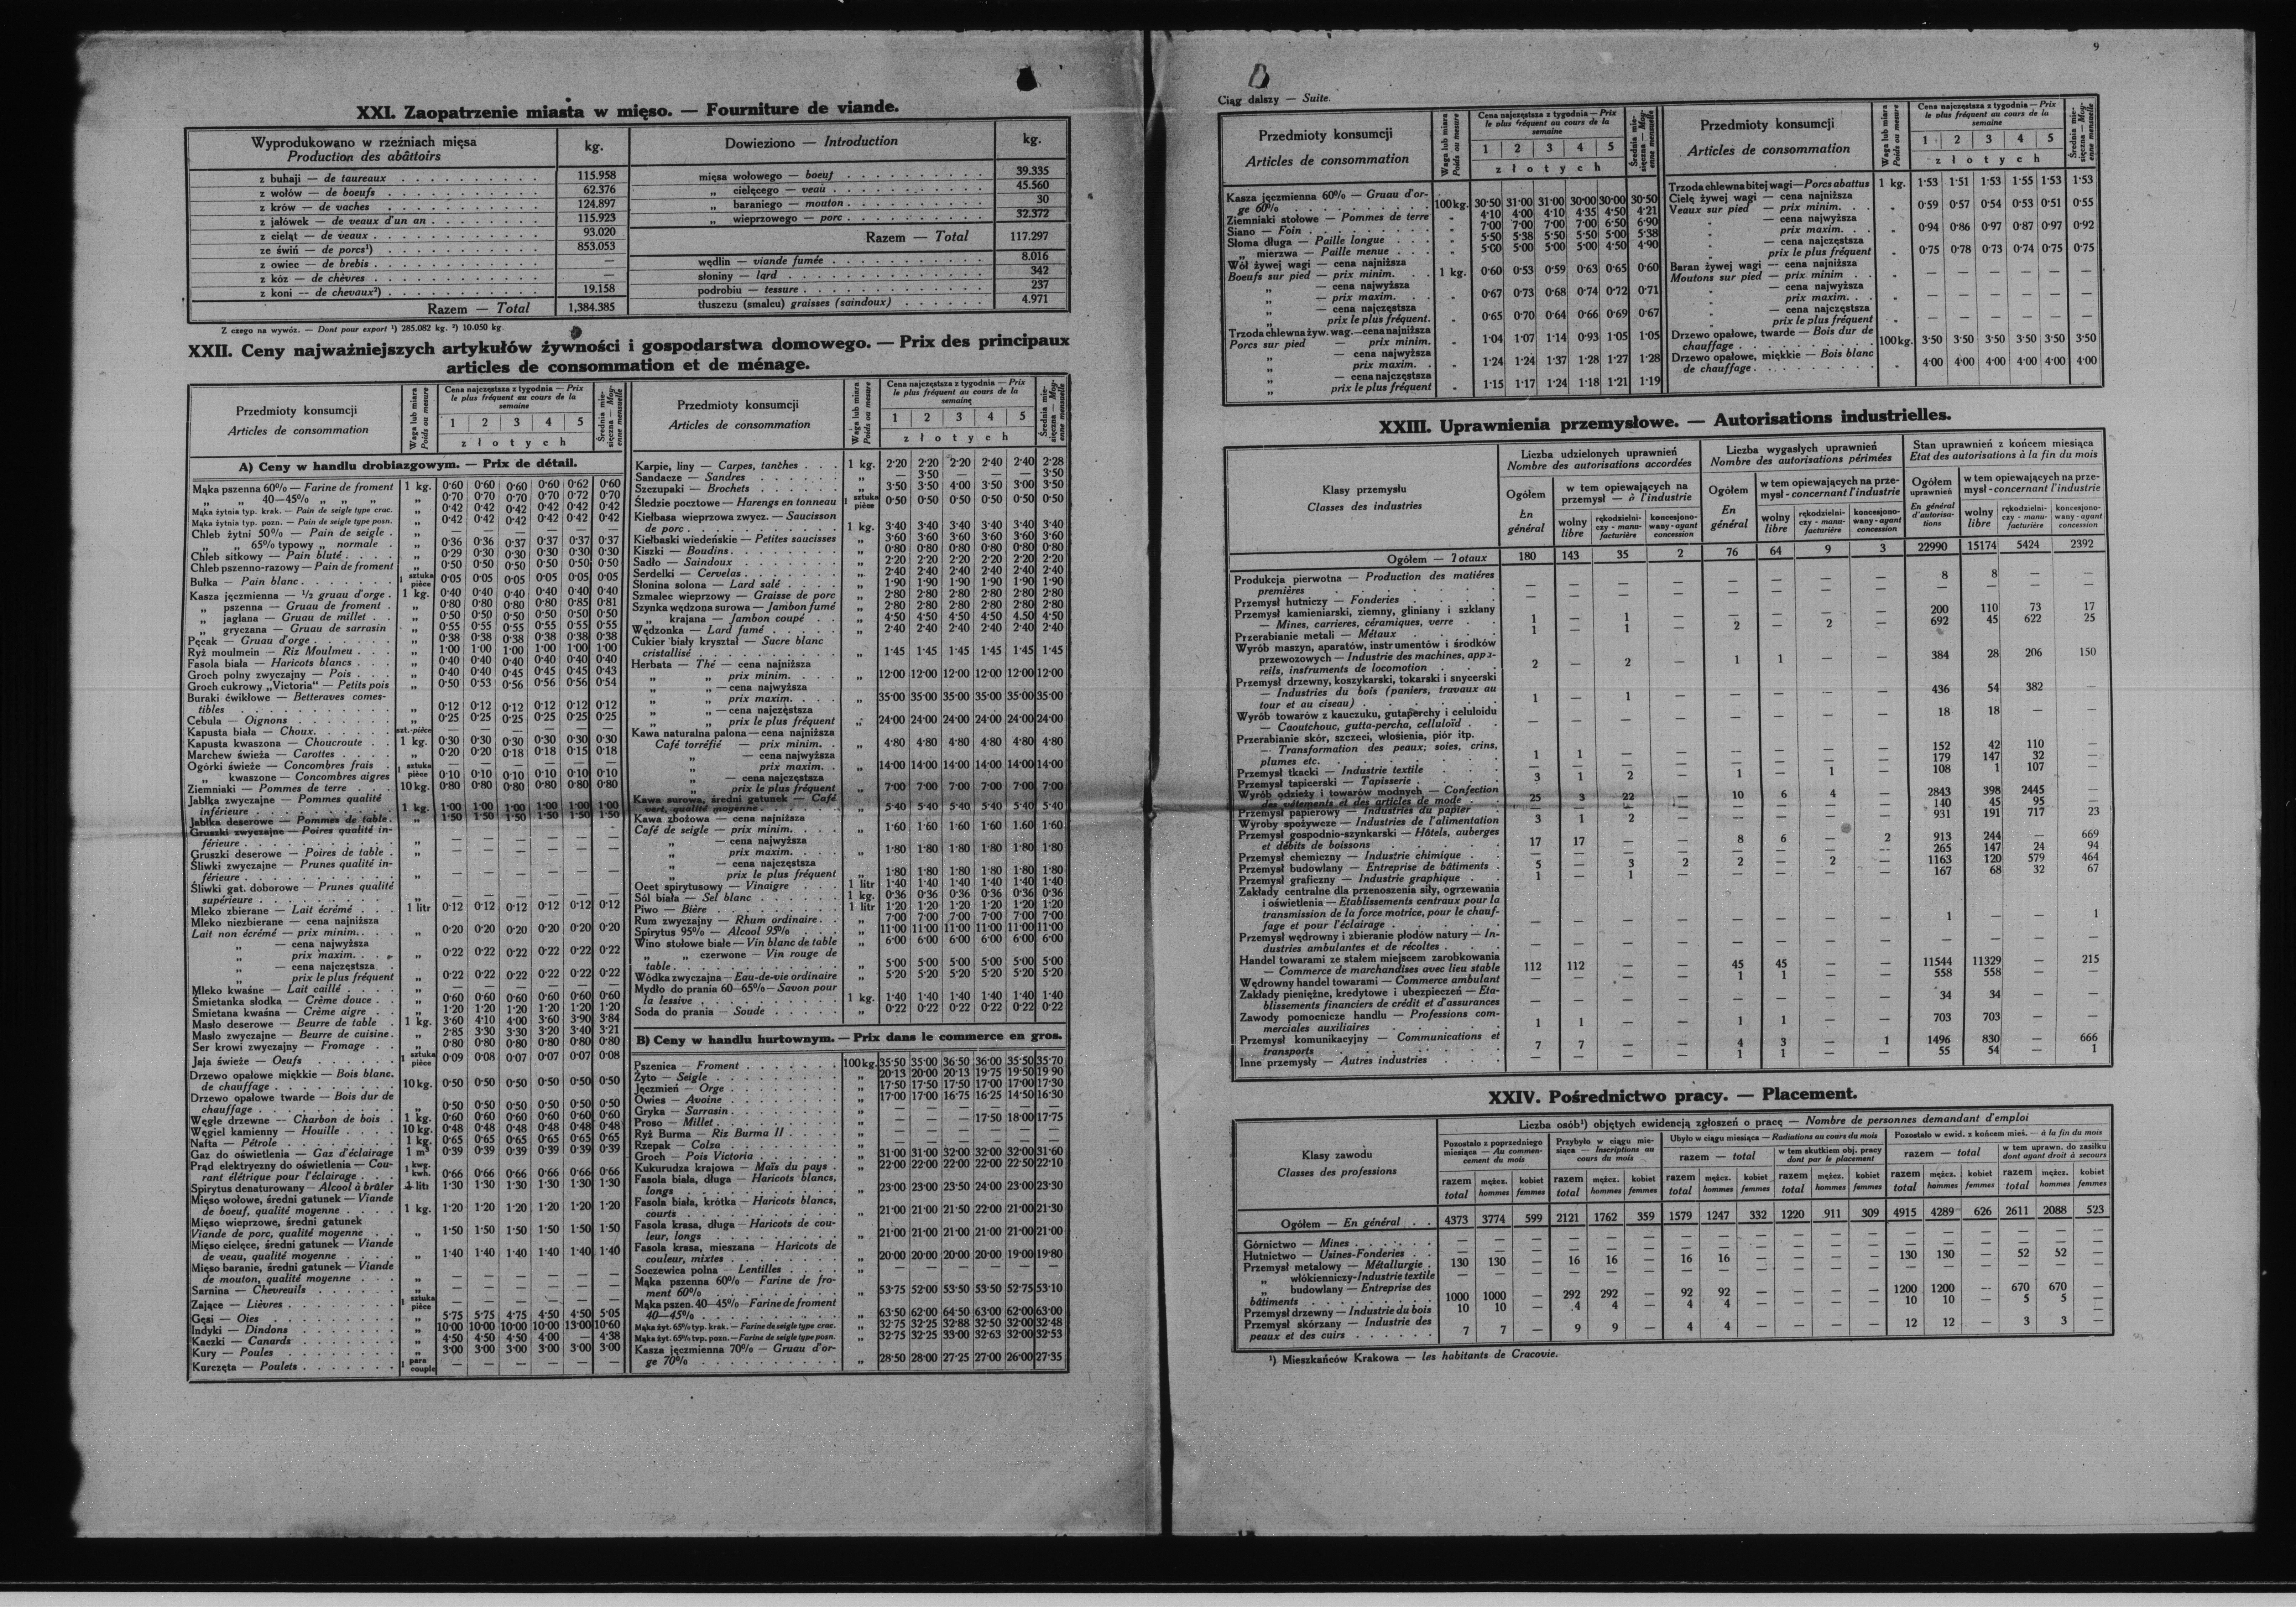 XXI. Zaopatrzenie miasta w mięso. — Fourniture de viande.
Wyprodukowano w rzeźniach mięsa
Production des abâttoirs
kg.
Dowieziono — Introduction
kg.
z buhaji — de taureaux 115.958
z wołów — de boeufs 62.376
z krów — de vaches 124.897
z jałówek — de veaux d'un an 115.923
z cieląt — de veaux 93.020
ze świń — de porcs¹) 853.053
z owiec — de brebis —
z kóz — de chèvres —
z koni — de chevaux²) 19.158
Razem — Total 1,384.385
mięsa wołowego — boeuf 39.335
„ cielęcego — veau 45.560
„ baraniego — mouton 30
„ wieprzowego — porc 32.372
Razem — Total 117.297
wędlin — viande fumée 8.016
słoniny — lard 342
podrobiu — tessure 237
tłuszczu (smalcu) graisses (saindoux) 4.971
Z czego na wywóz. — Dont pour export ¹) 285.082 kg. ²) 10.050 kg.
XXII. Ceny najważniejszych artykułów żywności i gospodarstwa domowego. — Prix des principaux
articles de consommation et de ménage.
Przedmioty konsumcji
Articles de consommation
Waga lub miara
Poids ou mesure
Cena najczęstsza z tygodnia — Prix
le plus fréquent au cours de la
semaine
1 2 3 4 5
złotych
Średnia miesięczna — Moyenne mensuelle
A) Ceny w handlu drobiazgowym. — Prix de détail.
Mąka pszenna 60% — Farine de froment 1 kg. 0·60 0·60 0·60 0·60 0·62 0·60
40—45% „ „ „ „ 0·70 0·70 0·70 0·70 0·72 0·70
Mąka żytnia typ. krak. — Pain de seigle type crac. „ 0·42 0·42 0·42 0·42 0·42 0·42
Mąka żytnia typ. pozn. — Pain de seigle type posn. „ 0·42 0·42 0·42 0·42 0·42 0·42
Chleb żytni 50% — Pain de seigle „ — — — — — —
„ „ 65% typowy „ normale „ 0·36 0·36 0·37 0·37 0·37 0·37
Chleb sitkowy — Pain bluté „ 0·29 0·30 0·30 0·30 0·30 0·30
Chleb pszenno-razowy — Pain de froment „ 0·50 0·50 0·50 0·50 0·50 0·50
Bułka — Pain blanc 1 sztuka pièce 0·05 0·05 0·05 0·05 0·05 0·05
Kasza jęczmienna — ½ gruau d'orge 1 kg. 0·40 0·40 0·40 0·40 0·40 0·40
„ pszenna — Gruau de froment „ 0·80 0·80 0·80 0·80 0·85 0·81
„ jaglana — Gruau de millet „ 0·50 0·50 0·50 0·50 0·50 0·50
„ gryczana — Gruau de sarrasin „ 0·55 0·55 0·55 0·55 0·55 0·55
Pęcak — Gruau d'orge „ 0·38 0·38 0·38 0·38 0·38 0·38
Ryż moulmein — Riz Moulmeu „ 1·00 1·00 1·00 1·00 1·00 1·00
Fasola biała — Haricots blancs „ 0·40 0·40 0·40 0·40 0·40 0·40
Groch polny zwyczajny — Pois „ 0·40 0·40 0·45 0·45 0·45 0·43
Groch cukrowy „Victoria“ — Petits pois „ 0·50 0·53 0·56 0·56 0·56 0·54
Buraki ćwikłowe — Betteraves comes-
tibles „ 0·12 0·12 0·12 0·12 0·12 0·12
Cebula — Oignons „ 0·25 0·25 0·25 0·25 0·25 0·25
Kapusta biała — Choux szt.-pièce — — — — — —
Kapusta kwaszona — Choucroute 1 kg. 0·30 0·30 0·30 0·30 0·30 0·30
Marchew świeża — Carottes „ 0·20 0·20 0·18 0·18 0·15 0·18
Ogórki świeże — Concombres frais 1 sztuka — — — — — —
„ kwaszone — Concombres aigres pièce 0·10 0·10 0·10 0·10 0·10 0·10
Ziemniaki — Pommes de terre 10 kg. 0·80 0·80 0·80 0·80 0·80 0·80
Jabłka zwyczajne — Pommes qualité
inférieure 1 kg. 1·00 1·00 1·00 1·00 1·00 1·00
Jabłka deserowe — Pommes de table „ 1·50 1·50 1·50 1·50 1·50 1·50
Gruszki zwyczajne — Poires qualité in-
férieure „ — — — — — —
Gruszki deserowe — Poires de table „ — — — — — —
Śliwki zwyczajne — Prunes qualité in-
férieure „ — — — — — —
Śliwki gat. doborowe — Prunes qualité
supérieure „ — — — — — —
Mleko zbierane — Lait écrémé 1 litr 0·12 0·12 0·12 0·12 0·12 0·12
Mleko niezbierane — cena najniższa
Lait non écrémé — prix minim. „ 0·20 0·20 0·20 0·20 0·20 0·20
„ — cena najwyższa
„ prix maxim. „ 0·22 0·22 0·22 0·22 0·22 0·22
„ — cena najczęstsza
„ prix le plus fréquent „ 0·22 0·22 0·22 0·22 0·22 0·22
Mleko kwaśne — Lait caillé „ — — — — — —
Śmietanka słodka — Crème douce „ 0·60 0·60 0·60 0·60 0·60 0·60
Śmietana kwaśna — Crème aigre „ 1·20 1·20 1·20 1·20 1·20 1·20
Masło deserowe — Beurre de table 1 kg. 3·60 4·10 4·00 3·60 3·90 3·84
Masło zwyczajne — Beurre de cuisine „ 2·85 3·30 3·30 3·20 3·40 3·21
Ser krowi zwyczajny — Fromage „ 0·80 0·80 0·80 0·80 0·80 0·80
Jaja świeże — Oeufs 1 sztuka pièce 0·09 0·08 0·07 0·07 0·07 0·08
Drzewo opałowe miękkie — Bois blanc.
de chauffage 10 kg. 0·50 0·50 0·50 0·50 0·50 0·50
Drzewo opałowe twarde — Bois dur de
chauffage „ 0·50 0·50 0·50 0·50 0·50 0·50
Węgle drzewne — Charbon de bois 1 kg. 0·60 0·60 0·60 0·60 0·60 0·60
Węgiel kamienny — Houille 10 kg. 0·48 0·48 0·48 0·48 0·48 0·48
Nafta — Pétrole 1 kg. 0·65 0·65 0·65 0·65 0·65 0·65
Gaz do oświetlenia — Gaz d'éclairage 1 m³ 0·39 0·39 0·39 0·39 0·39 0·39
Prąd elektryczny do oświetlenia — Cou-
rant élétrique pour l'éclairage 1 kwg. kwh. 0·66 0·66 0·66 0·66 0·66 0·66
Spirytus denaturowany — Alcool à brûler 1 litr 1·30 1·30 1·30 1·30 1·30 1·30
Mięso wołowe, średni gatunek — Viande
de boeuf, qualité moyenne 1 kg. 1·20 1·20 1·20 1·20 1·20 1·20
Mięso wieprzowe, średni gatunek
Viande de porc, qualité moyenne „ 1·50 1·50 1·50 1·50 1·50 1·50
Mięso cielęce, średni gatunek — Viande
de veau, qualité moyenne „ 1·40 1·40 1·40 1·40 1·40 1·40
Mięso baranie, średni gatunek — Viande
de mouton, qualité moyenne „ — — — — — —
Sarnina — Chevreuils „ — — — — — —
Zające — Lièvres 1 sztuka pièce — — — — — —
Gęsi — Oies „ 5·75 5·75 4·75 4·50 4·50 5·05
Indyki — Dindons „ 10·00 10·00 10·00 10·00 13·00 10·60
Kaczki — Canards „ 4·50 4·50 4·50 4·00 — 4·38
Kury — Poules „ 3·00 3·00 3·00 3·00 3·00 3·00
Kurczęta — Poulets 1 para couple — — — — — —
Przedmioty konsumcji
Articles de consommation
Waga lub miara
Poids ou mesure
Cena najczęstsza z tygodnia — Prix
le plus fréquent au cours de la
semaine
1 2 3 4 5
złotych
Średnia miesięczna — Moyenne mensuelle
Karpie, liny — Carpes, tanches 1 kg. 2·20 2·20 2·20 2·40 2·40 2·28
Sandacze — Sandres „ — 3·50 — — — 3·50
Szczupaki — Brochets „ 3·50 3·50 4·00 3·50 3·00 3·50
Śledzie pocztowe — Harengs en tonneau 1 sztuka pièce 0·50 0·50 0·50 0·50 0·50 0·50
Kiełbasa wieprzowa zwycz. — Saucisson
de porc 1 kg. 3·40 3·40 3·40 3·40 3·40 3·40
Kiełbaski wiedeńskie — Petites saucisses „ 3·60 3·60 3·60 3·60 3·60 3·60
Kiszki — Boudins „ 0·80 0·80 0·80 0·80 0·80 0·80
Sadło — Saindoux „ 2·20 2·20 2·20 2·20 2·20 2·20
Serdelki — Cervelas „ 2·40 2·40 2·40 2·40 2·40 2·40
Słonina solona — Lard salé „ 1·90 1·90 1·90 1·90 1·90 1·90
Szmalec wieprzowy — Graisse de porc „ 2·80 2·80 2·80 2·80 2·80 2·80
Szynka wędzona surowa — Jambon fumé „ 2·80 2·80 2·80 2·80 2·80 2·80
„ krajana — Jambon coupé „ 4·50 4·50 4·50 4·50 4.50 4·50
Wędzonka — Lard fumé „ 2·40 2·40 2·40 2·40 2·40 2·40
Cukier biały kryształ — Sucre blanc
cristallisé „ 1·45 1·45 1·45 1·45 1·45 1·45
Herbata — Thé — cena najniższa
„ „ prix minim. „ 12·00 12·00 12·00 12·00 12·00 12·00
„ „ — cena najwyższa
„ „ prix maxim. „ 35·00 35·00 35·00 35·00 35·00 35·00
„ „ — cena najczęstsza
„ „ prix le plus fréquent „ 24·00 24·00 24·00 24·00 24·00 24·00
Kawa naturalna palona — cena najniższa
Café torréfié — prix minim. „ 4·80 4·80 4·80 4·80 4·80 4·80
„ — cena najwyższa
„ prix maxim. „ 14·00 14·00 14·00 14·00 14·00 14·00
„ — cena najczęstsza
„ prix le plus fréquent „ 7·00 7·00 7·00 7·00 7·00 7·00
Kawa surowa, średni gatunek — Café
vert, qualité moyenne „ 5·40 5·40 5·40 5·40 5·40 5·40
Kawa zbożowa — cena najniższa
Café de seigle — prix minim. „ 1·60 1·60 1·60 1·60 1.60 1·60
„ — cena najwyższa
„ prix maxim. „ 1·80 1·80 1·80 1·80 1·80 1·80
„ — cena najczęstsza
„ prix le plus fréquent „ 1·80 1·80 1·80 1·80 1·80 1·80
Ocet spirytusowy — Vinaigre 1 litr 1·40 1·40 1·40 1·40 1·40 1·40
Sól biała — Sel blanc 1 kg. 0·36 0·36 0·36 0·36 0·36 0·36
Piwo — Bière 1 litr 1·20 1·20 1·20 1·20 1·20 1·20
Rum zwyczajny — Rhum ordinaire „ 7·00 7·00 7·00 7·00 7·00 7·00
Spirytus 95% — Alcool 95% „ 11·00 11·00 11·00 11·00 11·00 11·00
Wino stołowe białe — Vin blanc de table „ 6·00 6·00 6·00 6·00 6·00 6·00
„ „ czerwone — Vin rouge de
table „ 5·00 5·00 5·00 5·00 5·00 5·00
Wódka zwyczajna — Eau-de-vie ordinaire „ 5·20 5·20 5·20 5·20 5·20 5·20
Mydło do prania 60—65% — Savon pour
la lessive 1 kg. 1·40 1·40 1·40 1·40 1·40 1·40
Soda do prania — Soude „ 0·22 0·22 0·22 0·22 0·22 0·22
B) Ceny w handlu hurtownym. — Prix dans le commerce en gros.
Pszenica — Froment 100 kg. 35·50 35·00 36·50 36·00 35·50 35·70
Żyto — Seigle „ 20·13 20·00 20·13 19·75 19·50 19 90
Jęczmień — Orge „ 17·50 17·50 17·50 17·00 17·00 17·30
Owies — Avoine „ 17·00 17·00 16·75 16·25 14·50 16·30
Gryka — Sarrasin „ — — — — — —
Proso — Millet „ — — — 17·50 18·00 17·75
Ryż Burma — Riz Burma II „ — — — — — —
Rzepak — Colza „ — — — — — —
Groch — Pois Victoria „ 31·00 31·00 32·00 32·00 32·00 31·60
Kukurudza krajowa — Maïs du pays „ 22·00 22·00 22·00 22·00 22·50 22·10
Fasola biała, długa — Haricots blancs,
longs „ 23·00 23·00 23·50 24·00 23·00 23·30
Fasola biała, krótka — Haricots blancs,
courts „ 21·00 21·00 21·50 22·00 21·00 21·30
Fasola krasa, długa — Haricots de cou-
leur, longs „ 21·00 21·00 21·00 21·00 21·00 21·00
Fasola krasa, mieszana — Haricots de
couleur, mixtes „ 20·00 20·00 20·00 20·00 19·00 19·80
Soczewica polna — Lentilles „ — — — — — —
Mąka pszenna 60% — Farine de fro-
ment 60% „ 53·75 52·00 53·50 53·50 52·75 53·10
Mąka pszen. 40—45% — Farine de froment
40—45% „ 63·50 62·00 64·50 63·00 62·00 63·00
Mąka żyt. 65% typ. krak. — Farine de seigle type crac. „ 32·75 32·25 32·88 32·50 32·00 32·48
Mąka żyt. 65% typ. pozn. — Farine de seigle type posn. „ 32·75 32·25 33·00 32·63 32·00 32·53
Kasza jęczmienna 70% — Gruau d'or-
ge 70% „ 28·50 28·00 27·25 27·00 26·00 27·35
9
Ciąg dalszy — Suite.
Przedmioty konsumcji
Articles de consommation
Waga lub miara
Poids ou mesure
Cena najczęstsza z tygodnia — Prix
le plus fréquent au cours de la
semaine
1 2 3 4 5
złotych
Średnia miesięczna — Moyenne mensuelle
Kasza jęczmienna 60% — Gruau d'or-
ge 60% 100 kg. 30·50 31·00 31·00 30·00 30·00 30·50
Ziemniaki stołowe — Pommes de terre „ 4·10 4·00 4·10 4·35 4·50 4·21
Siano — Foin „ 7·00 7·00 7·00 7·00 6·50 6·90
Słoma długa — Paille longue „ 5·50 5·38 5·50 5·50 5·00 5·38
„ mierzwa — Paille menue „ 5·00 5·00 5·00 5·00 4·50 4·90
Wół żywej wagi — cena najniższa
Boeufs sur pied — prix minim. 1 kg. 0·60 0·53 0·59 0·63 0·65 0·60
„ — cena najwyższa
„ — prix maxim. „ 0·67 0·73 0·68 0·74 0·72 0·71
„ — cena najczęstsza
„ prix le plus fréquent. „ 0·65 0·70 0·64 0·66 0·69 0·67
Trzoda chlewna żyw. wag. — cena najniższa
Porcs sur pied — prix minim. „ 1·04 1·07 1·14 0·93 1·05 1·05
„ — cena najwyższa
„ prix maxim. „ 1·24 1·24 1·37 1·28 1·27 1·28
„ — cena najczęstsza
„ prix le plus fréquent „ 1·15 1·17 1·24 1·18 1·21 1·19
Przedmioty konsumcji
Articles de consommation
Waga lub miara
Poids ou mesure
Cena najczęstsza z tygodnia — Prix
le plus fréquent au cours de la
semaine
1 2 3 4 5
złotych
Średnia miesięczna — Moyenne mensuelle
Trzoda chlewna bitej wagi — Porcs abattus 1 kg. 1·53 1·51 1·53 1·55 1·53 1·53
Cielę żywej wagi — cena najniższa
Veaux sur pied — prix minim. „ 0·59 0·57 0·54 0·53 0·51 0·55
„ — cena najwyższa
„ prix maxim. „ 0·94 0·86 0·97 0·87 0·97 0·92
„ — cena najczęstsza
„ prix le plus fréquent „ 0·75 0·78 0·73 0·74 0·75 0·75
Baran żywej wagi — cena najniższa
Moutons sur pied — prix minim „ — — — — — —
„ — cena najwyższa
„ prix maxim. „ — — — — — —
„ — cena najczęstsza
„ prix le plus fréquent „ — — — — — —
Drzewo opałowe, twarde — Bois dur de
chauffage 100 kg. 3·50 3·50 3·50 3·50 3·50 3·50
Drzewo opałowe, miękkie — Bois blanc
de chauffage „ 4·00 4·00 4·00 4·00 4·00 4·00
XXIII. Uprawnienia przemysłowe. — Autorisations industrielles.
Klasy przemysłu
Classes des industries
Liczba udzielonych uprawnień
Nombre des autorisations accordées
Liczba wygasłych uprawnień
Nombre des autorisations périmées
Stan uprawnień z końcem miesiąca
Etat des autorisations à la fin du mois
Ogółem
En général
w tem opiewających na
przemysł — à l'industrie
wolny libre
rękodzielniczy - manufacturière
koncesjonowany - ayant concession
Ogółem
En général
w tem opiewających na prze-
mysł - concernant l'industrie
wolny libre
rękodzielniczy - manufacturière
koncesjonowany - ayant concession
Ogółem uprawnień
En général d'autorisations
w tem opiewających na prze-
mysł - concernant l'industrie
wolny libre
rękodzielniczy - manufacturière
koncesjonowany - ayant concession
Ogółem — Totaux 180 143 35 2 76 64 9 3 22990 15174 5424 2392
Produkcja pierwotna — Production des matières
premières — — — — — — — — 8 8 — —
Przemysł hutniczy — Fonderies — — — — — — — — — — — —
Przemysł kamieniarski, ziemny, gliniany i szklany
— Mines, carrieres, céramiques, verre 1 — 1 — — — — — 200 110 73 17
Przerabianie metali — Métaux 1 — 1 — 2 — 2 — 692 45 622 25
Wyrób maszyn, aparatów, instrumentów i środków
przewozowych — Industrie des machines, appa-
reils, instruments de locomotion 2 — 2 — 1 1 — — 384 28 206 150
Przemysł drzewny, koszykarski, tokarski i snycerski
— Industries du bois (paniers, travaux au
tour et au ciseau) 1 — 1 — — — — — 436 54 382 —
Wyrób towarów z kauczuku, gutaperchy i celuloidu
— Caoutchouc, gutta-percha, celluloïd — — — — — — — — 18 18 — —
Przerabianie skór, szczeci, włosienia, piór itp.
— Transformation des peaux; soies, crins,
plumes etc. 1 1 — — — — — — 152 42 110 —
Przemysł tkacki — Industrie textile — — — — — — — — 179 147 32 —
Przemysł tapicerski — Tapisserie 3 1 2 — 1 — 1 — 108 1 107 —
Wyrób odzieży i towarów modnych — Confection
des vêtements et des articles de mode 25 3 22 — 10 6 4 — 2843 398 2445 —
Przemysł papierowy — Industries du papier — — — — — — — — 140 45 95 —
Wyroby spożywcze — Industries de l'alimentation 3 1 2 — — — — — 931 191 717 23
Przemysł gospodnio-szynkarski — Hôtels, auberges
et débits de boissons 17 17 — — 8 6 — 2 913 244 — 669
Przemysł chemiczny — Industrie chimique — — — — — — — — 265 147 24 94
Przemysł budowlany — Entreprise de bâtiments 5 — 3 2 2 — 2 — 1163 120 579 464
Przemysł graficzny — Industrie graphique 1 — 1 — — — — — 167 68 32 67
Zakłady centralne dla przenoszenia siły, ogrzewania
i oświetlenia — Etablissements centraux pour la
transmission de la force motrice, pour le chauf-
fage et pour l'éclairage — — — — — — — — 1 — — 1
Przemysł wędrowny i zbieranie płodów natury — In-
dustries ambulantes et de récoltes — — — — — — — — — — — —
Handel towarami ze stałem miejscem zarobkowania
— Commerce de marchandises avec lieu stable 112 112 — — 45 45 — — 11544 11329 — 215
Wędrowny handel towarami — Commerce ambulant — — — — 1 1 — — 558 558 — —
Zakłady pieniężne, kredytowe i ubezpieczeń — Eta-
blissements financiers de crédit et d'assurances — — — — — — — — 34 34 — —
Zawody pomocnicze handlu — Professions com-
merciales auxiliaires 1 1 — — 1 1 — — 703 703 — —
Przemysł komunikacyjny — Communications et
transports 7 7 — — 4 3 — 1 1496 830 — 666
Inne przemysły — Autres industries — — — — 1 1 — — 55 54 — 1
XXIV. Pośrednictwo pracy. — Placement.
Klasy zawodu
Classes des professions
Liczba osób¹) objętych ewidencją zgłoszeń o pracę — Nombre de personnes demandant d'emploi
Pozostało z poprzedniego
miesiąca — Au commen-
cement du mois
Przybyło w ciągu mie-
siąca — Inscriptions au
cours du mois
Ubyło w ciągu miesiąca — Radiations au cours du mois
razem — total
w tem skutkiem obj. pracy
dont par le placement
Pozostało w ewid. z końcem mieś. — à la fin du mois
razem — total
w tem uprawn. do zasiłku
dont ayant droit à secours
razem mężcz. kobiet razem mężcz. kobiet razem mężcz. kobiet razem mężcz. kobiet razem mężcz. kobiet razem mężcz. kobiet
total hommes femmes total hommes femmes total hommes femmes total hommes femmes total hommes femmes total hommes femmes
Ogółem — En général 4373 3774 599 2121 1762 359 1579 1247 332 1220 911 309 4915 4289 626 2611 2088 523
Górnictwo — Mines — — — — — — — — — — — — — — — — — —
Hutnictwo — Usines-Fonderies — — — — — — — — — — — — — — — — — —
Przemysł metalowy — Métallurgie 130 130 — 16 16 — 16 16 — — — — 130 130 — 52 52 —
„ włókienniczy-Industrie textile — — — — — — — — — — — — — — — — — —
„ budowlany — Entreprise des
bâtiments 1000 1000 — 292 292 — 92 92 — — — — 1200 1200 — 670 670 —
Przemysł drzewny — Industrie du bois 10 10 — 4 4 — 4 4 — — — — 10 10 — 5 5 —
Przemysł skórzany — Industrie des
peaux et des cuirs 7 7 — 9 9 — 4 4 — — — — 12 12 — 3 3 —
¹) Mieszkańców Krakowa — les habitants de Cracovie.